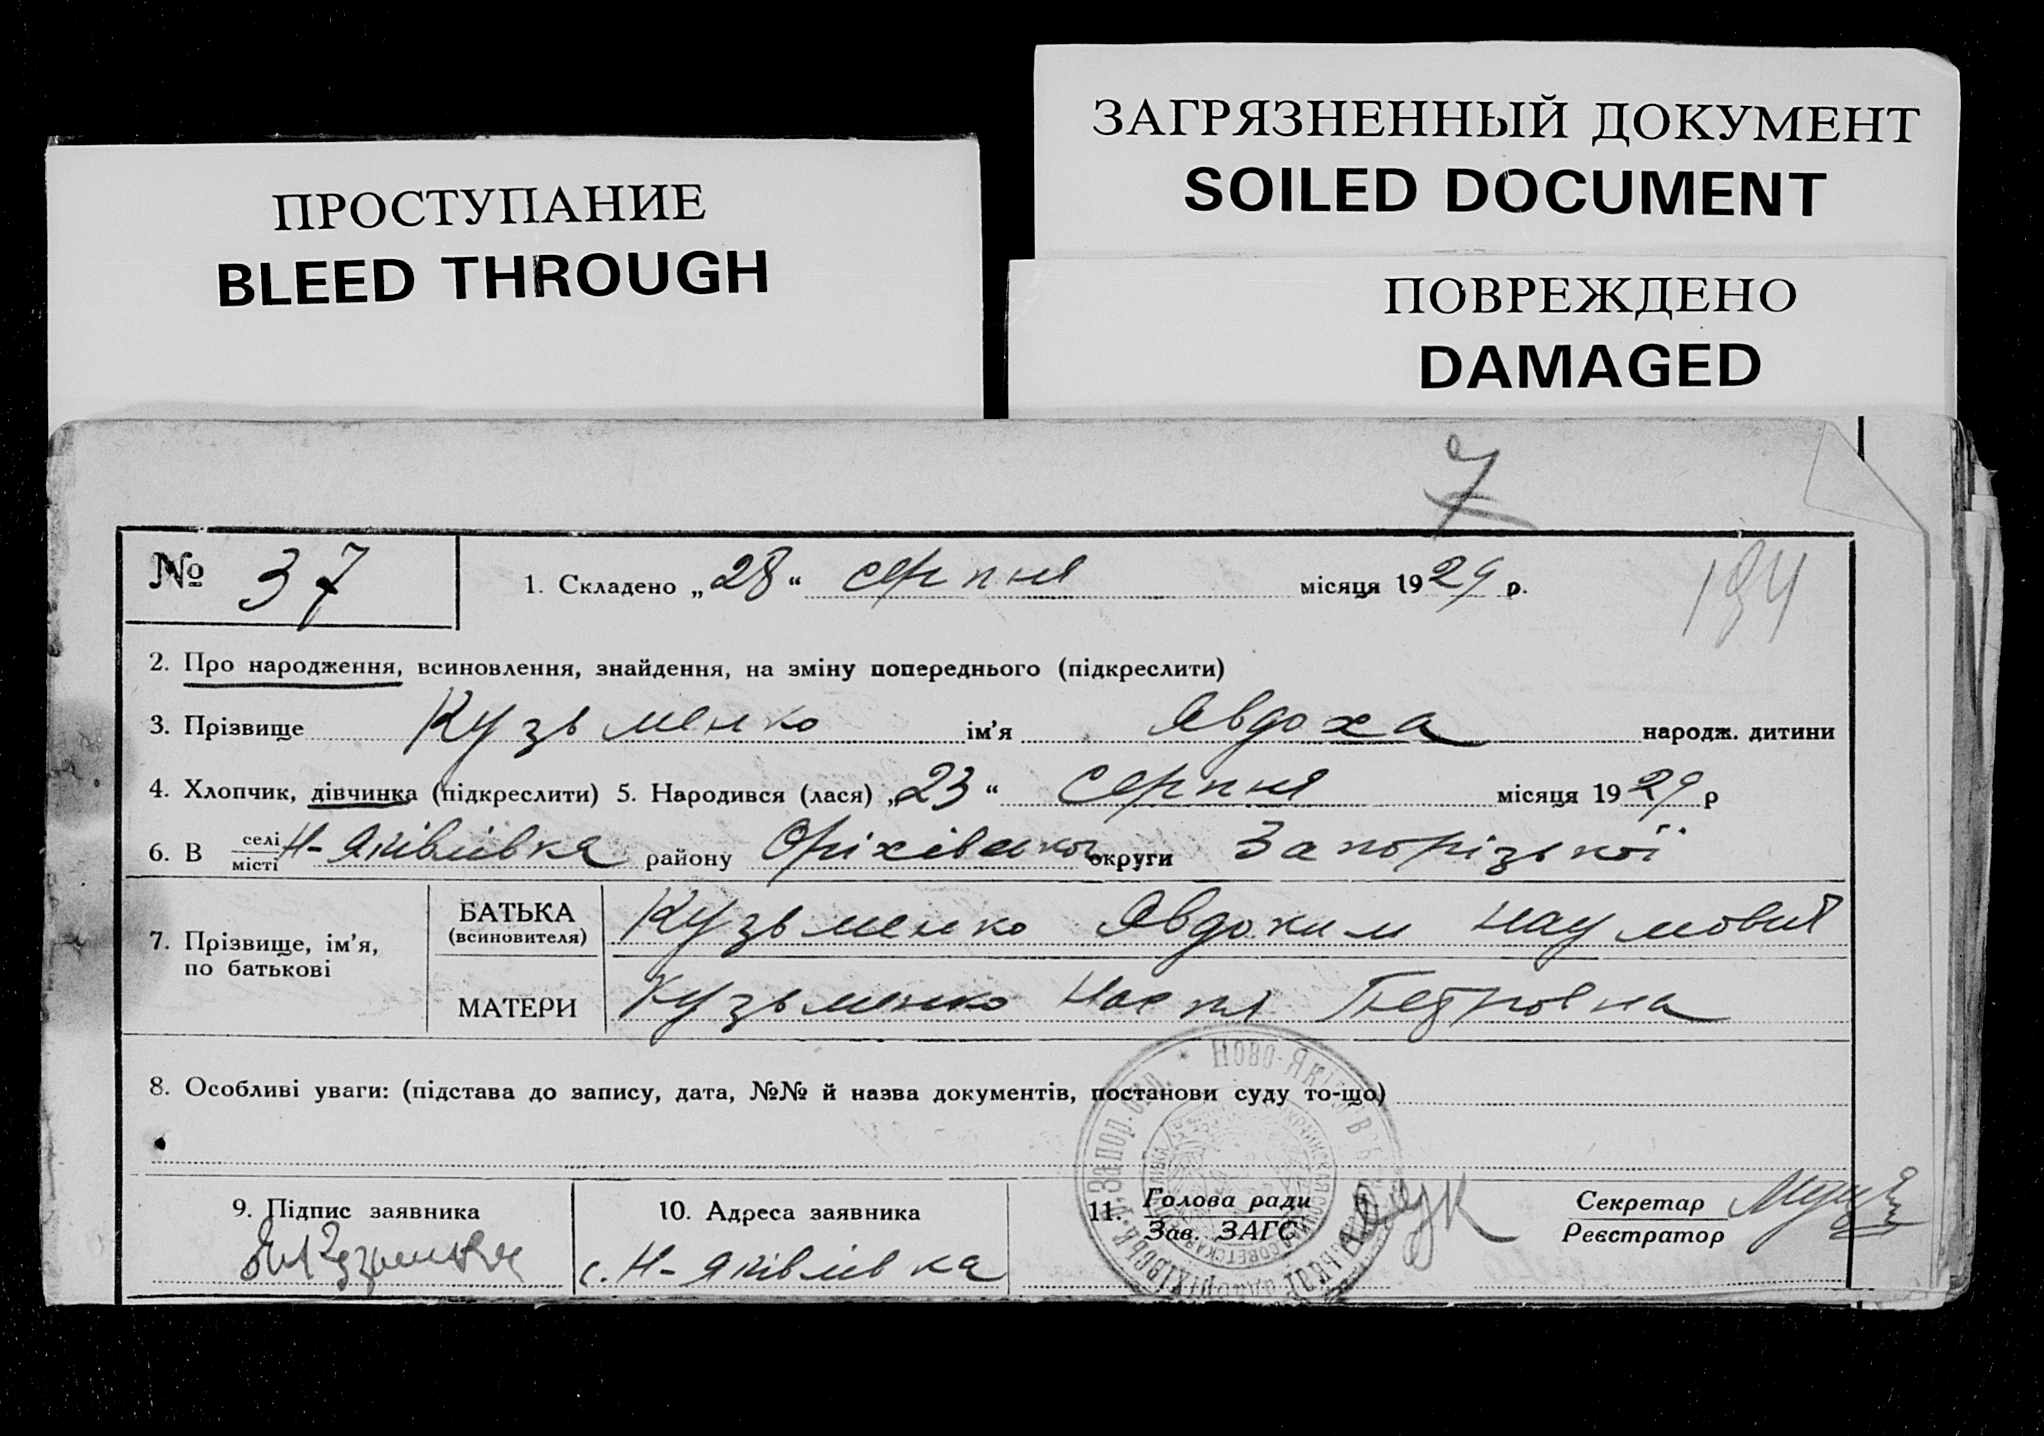 ЗАГРЯЗНЕННЫЙ ДОКУМЕНТ
SOILED DOCUMENT
ПРОСТУПАНИЕ
BLEED THROUGH
ПОВРЕЖДЕНО
DAMAGED
7
№ 37
1. Складено „28“ серпня місяця 1929 р.
194
2. Про народження, всиновлення, знайдення, на зміну попереднього (підкреслити)
3. Прізвище Кузьменко ім'я Явдоха народж. дитини
4. Хлопчик, дівчинка (підкреслити) 5. Народився (лася) „23“ серпня місяця 1929 р
6. В селі місті Н-Яківлівка району Оріхівської округи Запорізької
7. Прізвище, ім'я, по батькові
БАТЬКА (всиновителя) Кузьменко Явдоким Наумович
МАТЕРИ Кузьменко Настя Петровна
8. Особливі уваги: (підстава до запису, дата, №№ й назва документів, постанови суду то-що)
9. Підпис заявника
10. Адреса заявника
с. Н-Яківлівка
11. Голова ради
Зав. ЗАГС
Секретар
Реєстратор